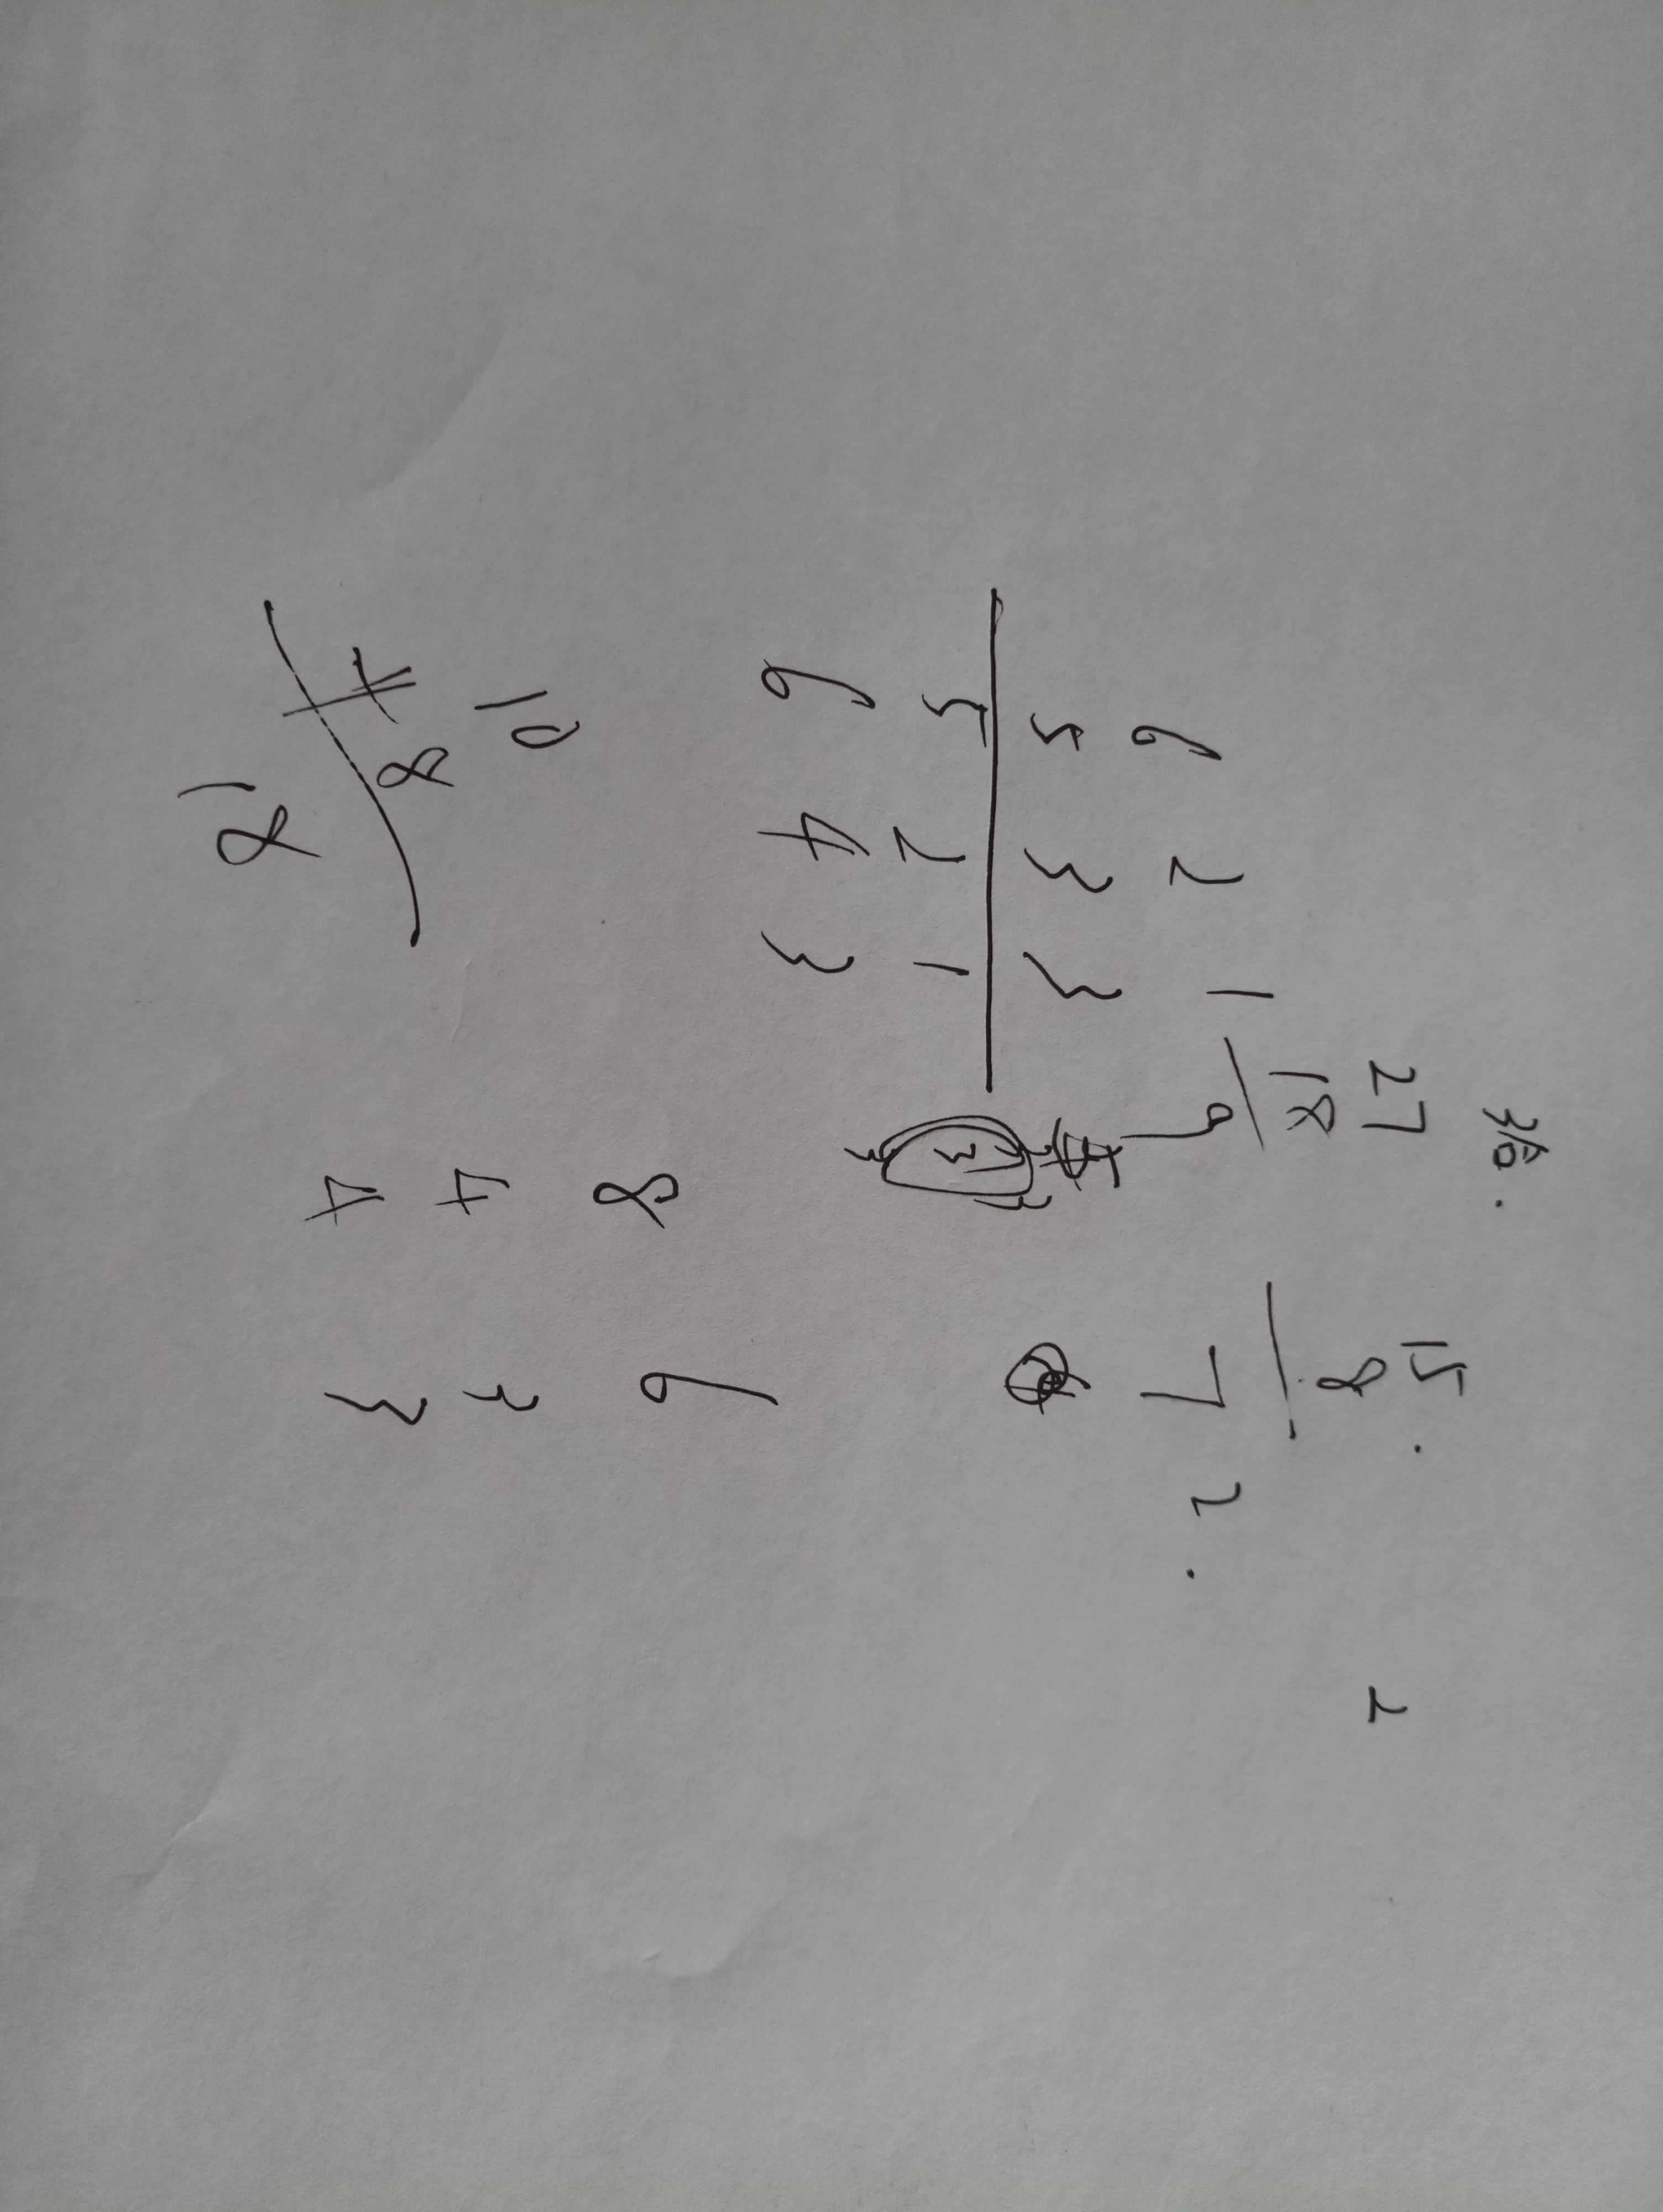 27 15. 2
18 8
6 2 1 9 7 2 .
5 3 3
5 2 1
6 4 3
8 6
10 4 2
8 4 3
18